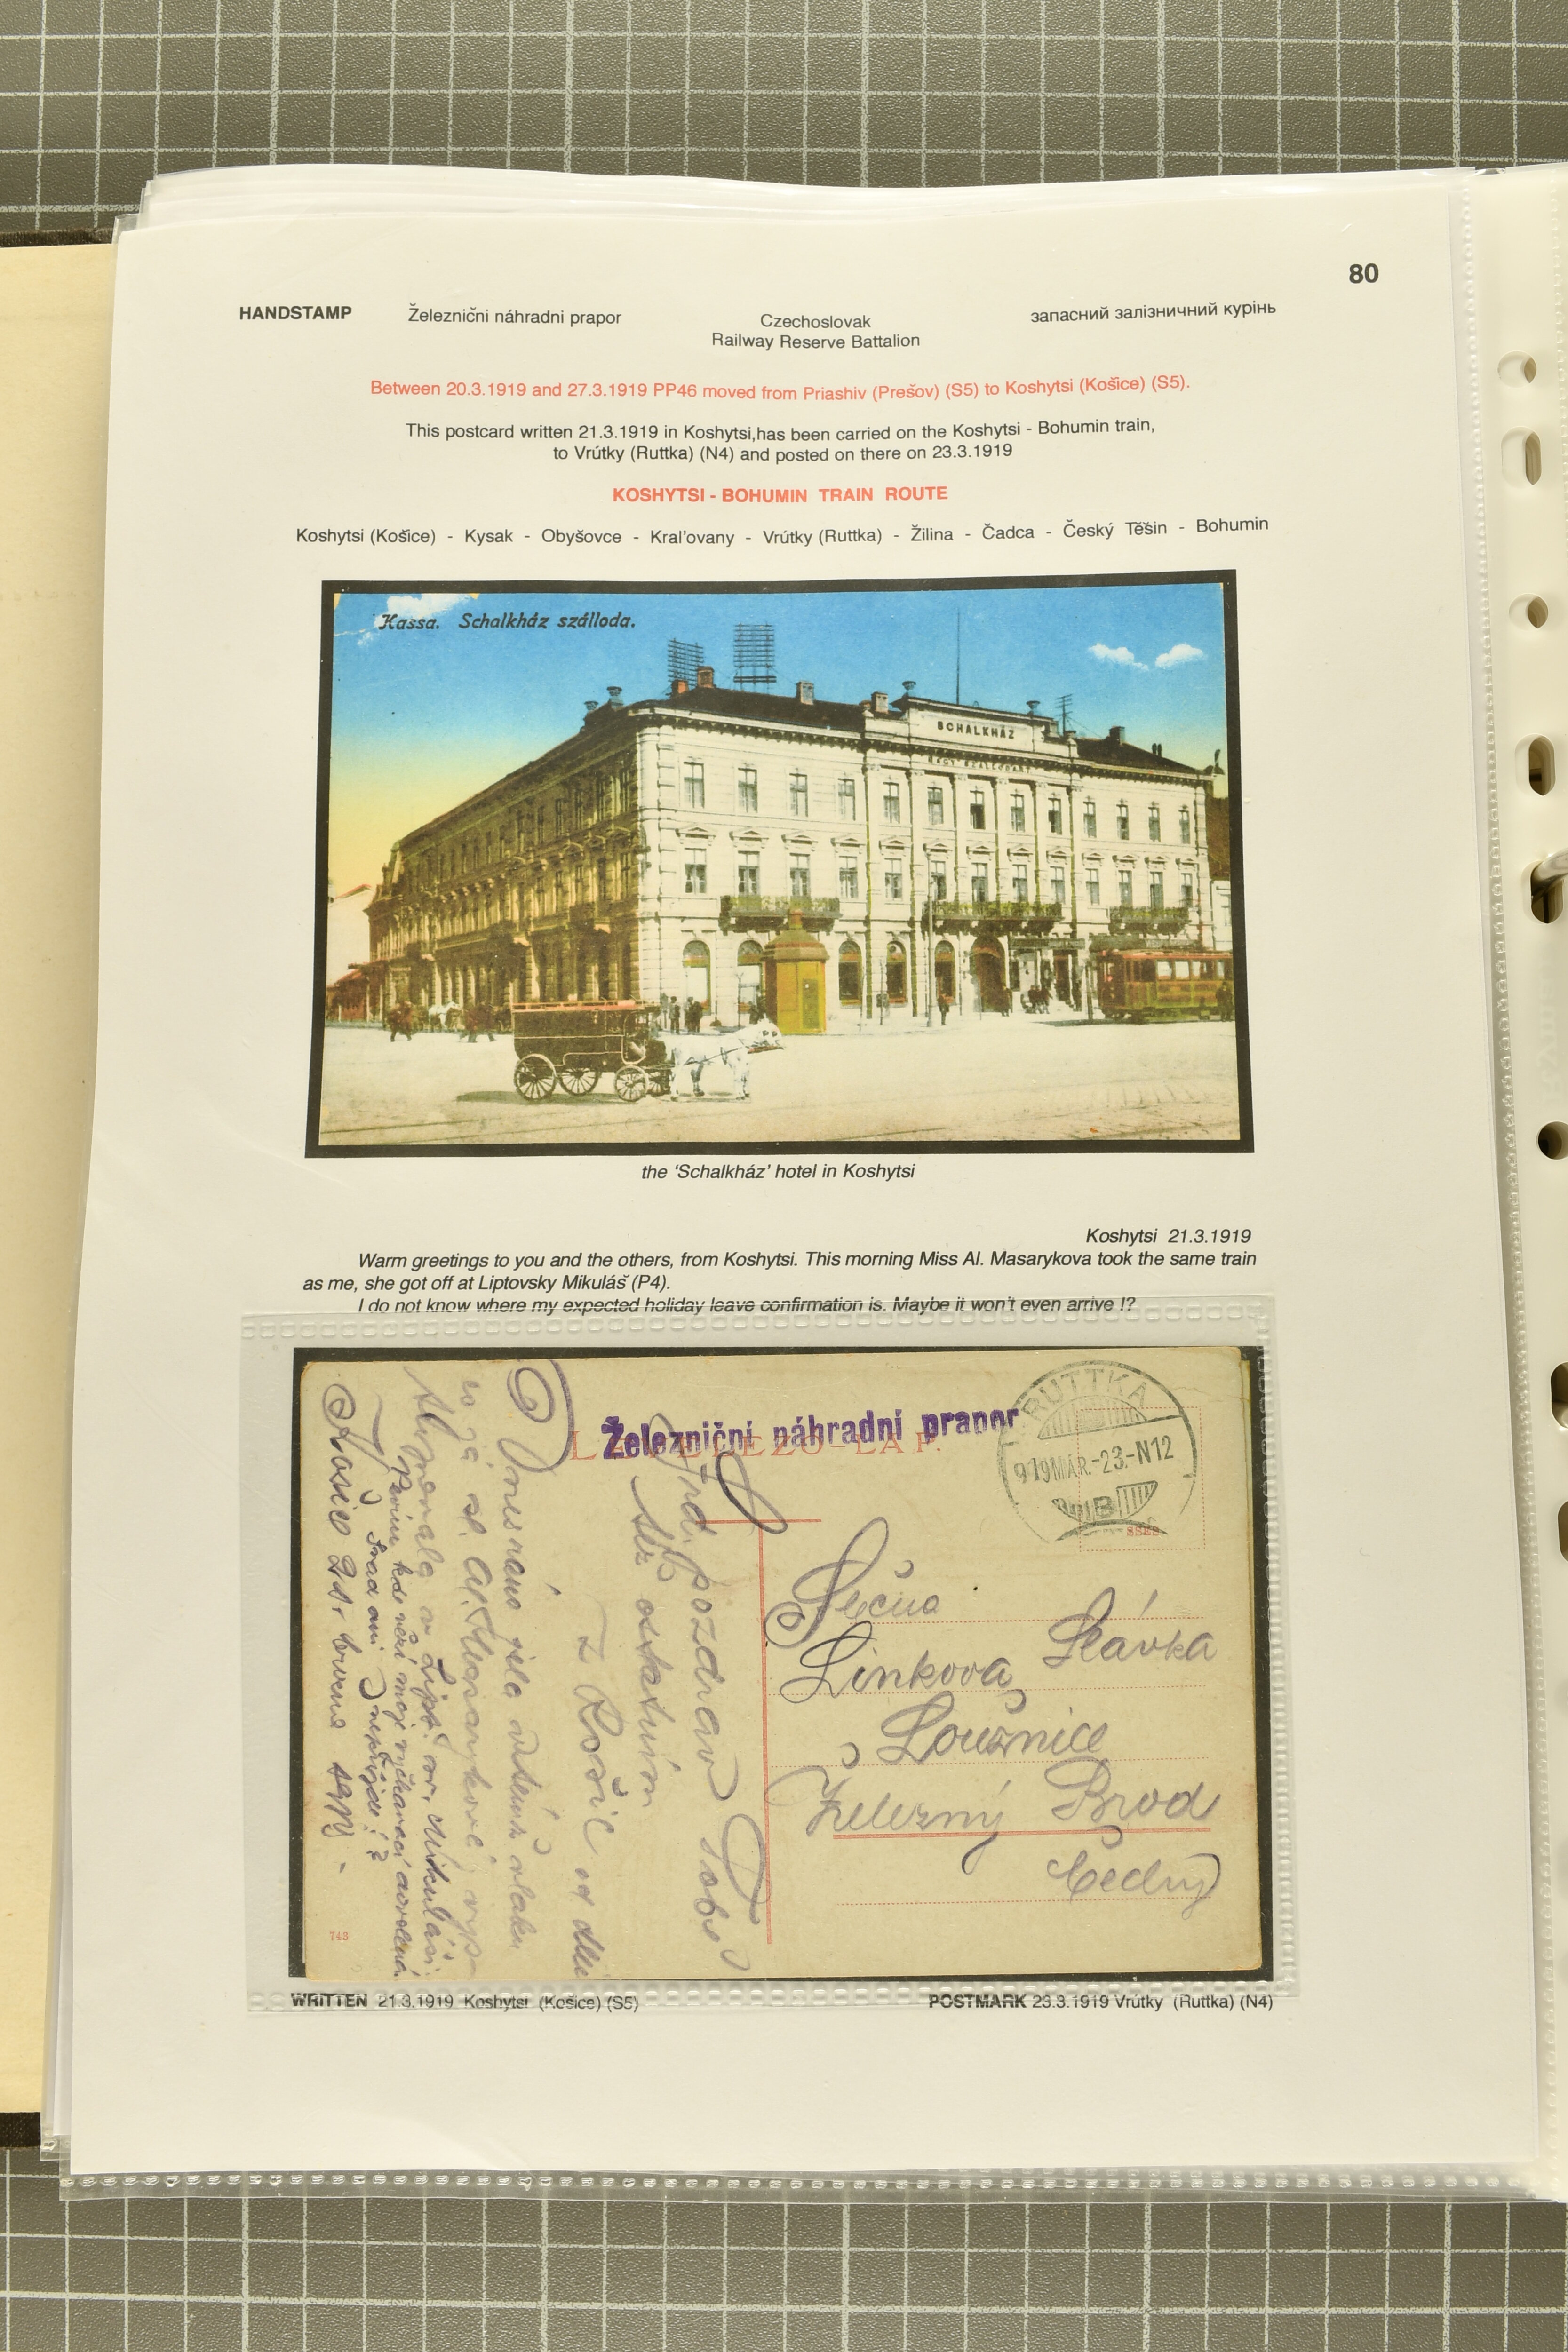 80
HANDSTAMP Železnični náhradni prapor Czechoslovak Railway Reserve Battalion запасний залізничний курінь
Between 20.3.1919 and 27.3.1919 PP46 moved from Priashiv (Prešov) (S5) to Koshytsi (Košice) (S5).
This postcard written 21.3.1919 in Koshytsi,has been carried on the Koshytsi - Bohumin train,
to Vrútky (Ruttka) (N4) and posted on there on 23.3.1919
KOSHYTSI - BOHUMIN TRAIN ROUTE
Koshytsi (Košice) - Kysak - Obyšovce - Kral'ovany - Vrútky (Ruttka) - Žilina - Čadca - Český Těšin - Bohumin
Kassa. Schalkház szálloda.
SCHALKHÁZ
the ‘Schalkház’ hotel in Koshytsi
Koshytsi 21.3.1919
Warm greetings to you and the others, from Koshytsi. This morning Miss Al. Masarykova took the same train
as me, she got off at Liptovsky Mikuláš (P4).
I do not know where my expected holiday leave confirmation is. Maybe it won't even arrive !?
Železniční náhradní prapor
RUTTKA
919 MÁR.-23.-N12
B
Slečna
Slávka
Linkova
Loužnice
Železný Brod
Čechy
Srd. pozdrav Tobě
též ostatním
z Košic
Dnes ráno jela vlaku
co já sl. Al. Masarykové
Lipt. sv. Mikuláši.
Nevím kde moje
Snad ani nepřijde!?
Košice 21. března 1919
743
WRITTEN 21.3.1919 Koshytsi (Košice) (S5)
POSTMARK 23.3.1919 Vrútky (Ruttka) (N4)